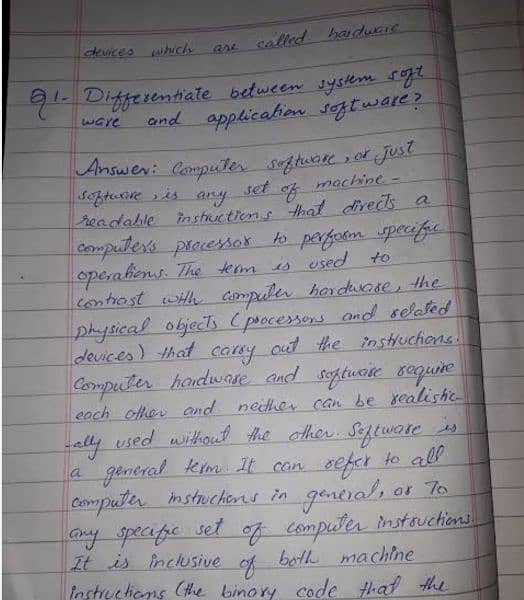 devices which are called hardware
Q1- Differentiate between system soft
ware and application software?
Answer: Computer software, or just
software, is any set of machine-
readable instructions that directs a
computer's processor to perform specific
operations. The term is used to
contrast with computer hardware, the
physical objects (processors and related
devices) that carry out the instructions.
Computer hardware and software require
each other and neither can be realistic-
-ally used without the other. Software is
a general term. It can refer to all
computer instructions in general, or To
any specific set of computer instructions.
It is inclusive of both machine
instructions (the binary code that the